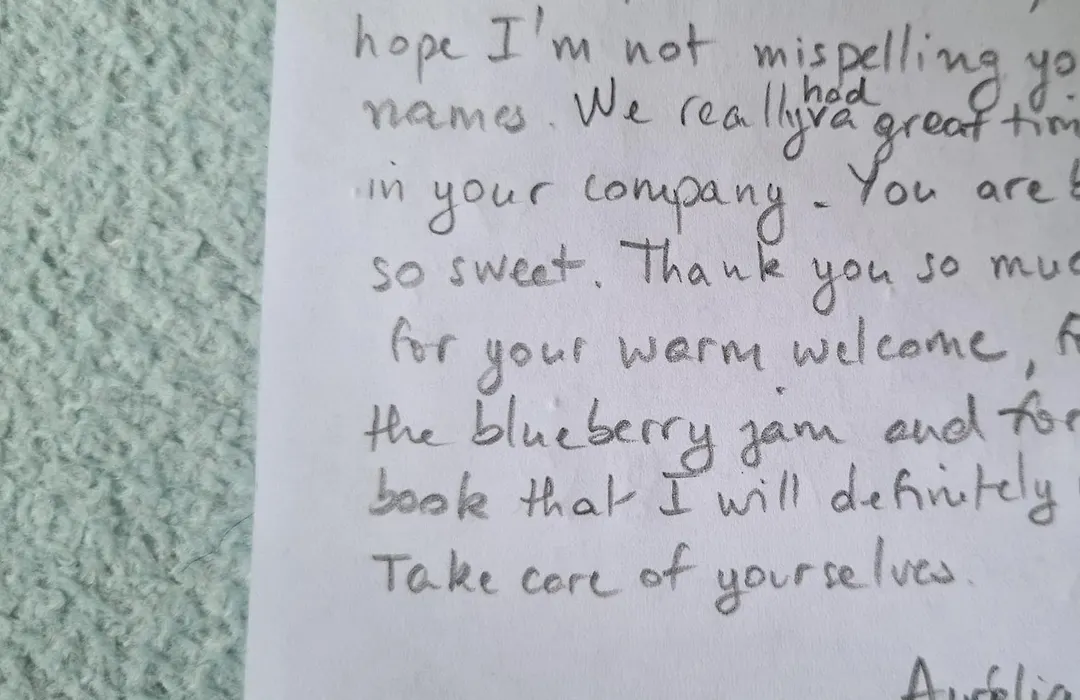 hope I'm not mispelling yo
names. We really had a great tim
in your company. You are b
so sweet. Thank you so muc
for your warm welcome, f
the blueberry jam and for
book that I will definitely
Take care of yourselves.
Aurélia